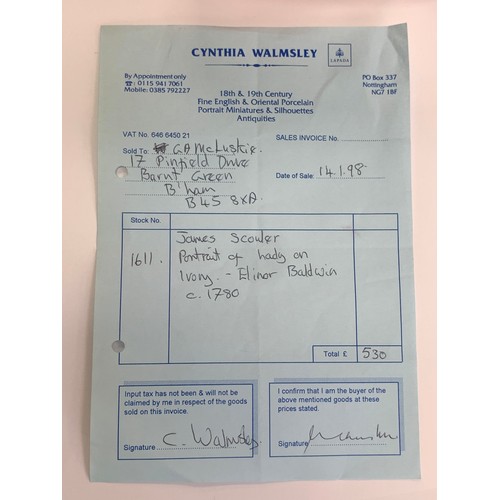 CYNTHIA WALMSLEY
LAPADA
By Appointment only
☎: 0115 941 7061
Mobile: 0385 792227
PO Box 337
Nottingham
NG7 1BF
18th & 19th Century
Fine English & Oriental Porcelain
Portrait Miniatures & Silhouettes
Antiquities
VAT No. 646 6450 21
SALES INVOICE No.
Sold To: G.A McLuskie.
17 Pinfield Drive
Barnt Green
B'ham
B45 8XA.
Date of Sale: 14.1.98
Stock No.
1611.
James Scouler
Portrait of Lady on
Ivory. - Elinor Baldwin
c. 1780
Total £ 530
Input tax has not been & will not be
claimed by me in respect of the goods
sold on this invoice.
Signature C. Walmsley.
I confirm that I am the buyer of the
above mentioned goods at these
prices stated.
Signature